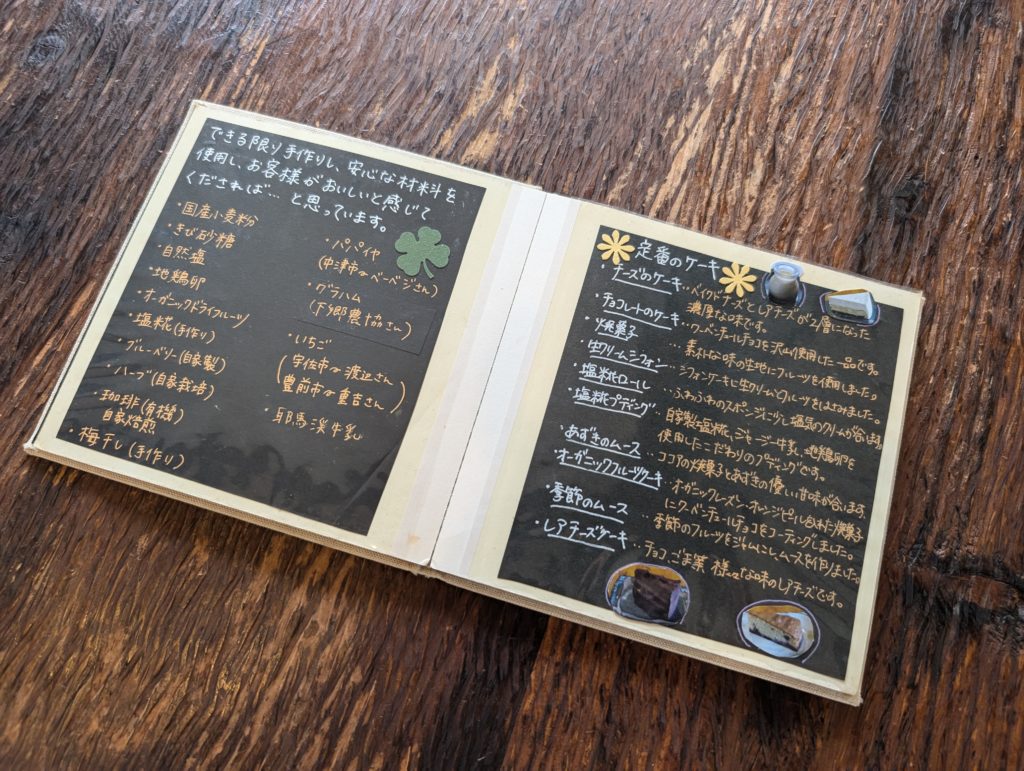 できる限り手作りし、安心な材料を
使用し、お客様がおいしいと感じて
くだされば… と思っています。
・国産小麦粉
・きび砂糖
・自然塩
・地鶏卵
・オーガニックドライフルーツ
・塩糀(手作り)
・ブルーベリー(自家製)
・ハーブ(自家栽培)
・珈琲(有機)
自家焙煎
・梅干し(手作り)
・パパイヤ
(中津市のベベジさん)
・グラハム
(下郷農協さん)
・いちご
(宇佐市の渡辺さん
豊前市の重吉さん)
・耶馬渓牛乳
定番のケーキ
・チーズのケーキ…ベイクドチーズとレアチーズが2層になった
濃厚な味です。
・チョコレートのケーキ…クーベルチュールチョコを沢山使用した一品です。
・焼菓子…素朴な味の生地にフルーツを使用しました。
・生クリームシフォン…シフォンケーキに生クリームとフルーツをはさみました。
・塩糀ロール…ふわふわのスポンジに少し塩気のクリームが合います
・塩糀プディング…自家製塩糀、ジャージー牛乳、地鶏卵を
使用したこだわりのプディングです。
・あずきのムース…ココアの焼菓子とあずきの優しい甘味が合います
・オーガニックフルーツケーキ…オーガニックレーズン・オレンジピール合わせた焼菓子
にクーベルチュールチョコをコーティングしました。
・季節のムース…季節のフルーツをジャムにしムースを作りました。
・レアチーズケーキ…チョコ、ごま、栗 様々な味のレアチーズです。